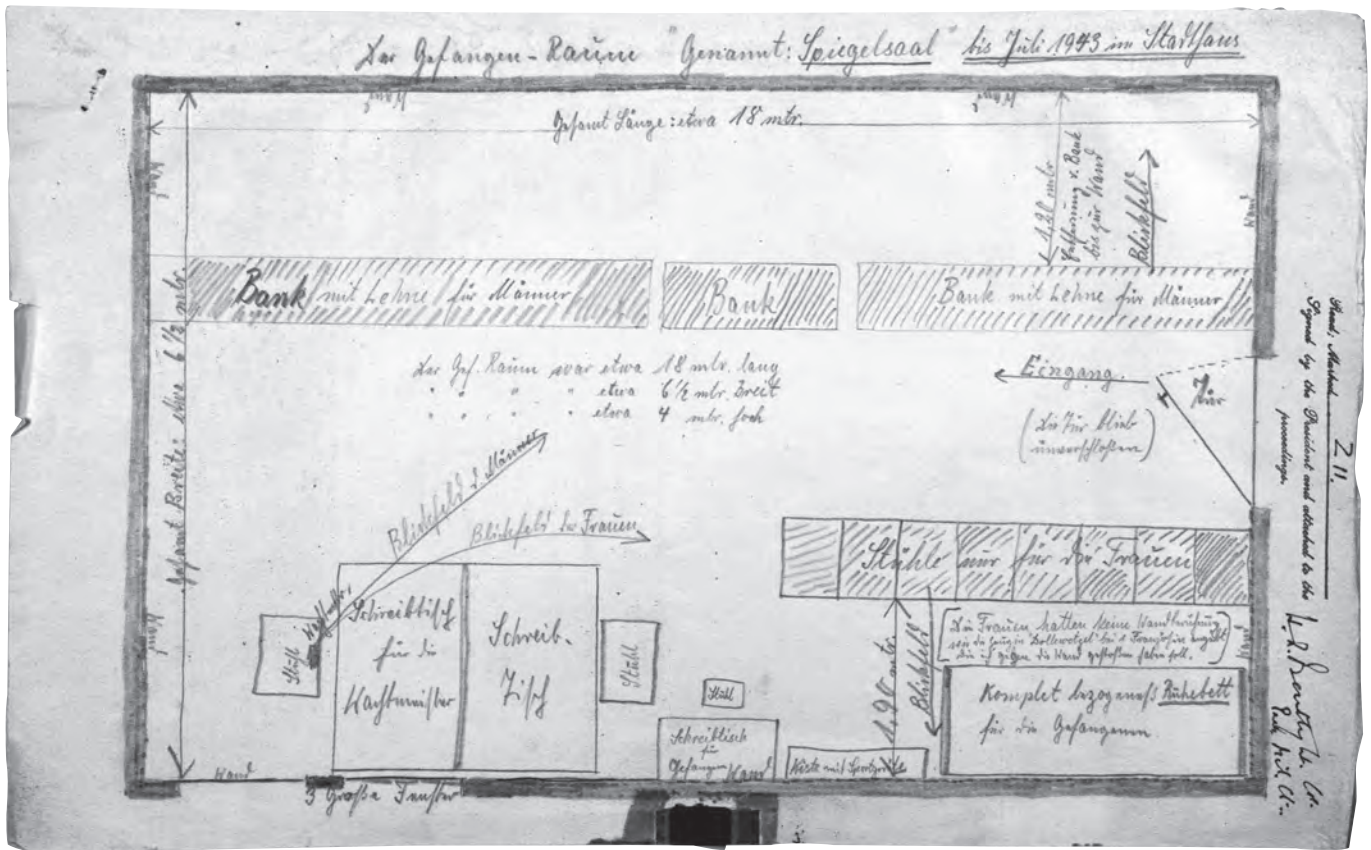 Der Gefangen-Raum "Genannt: Spiegelsaal" bis Juli 1943 im Stadthaus
Wand
Wand
Gesamt Länge: etwa 18 mtr.
Wand
Wand
1,20 mtr
Entfernung v. Bank
bis zur Wand
Blickfeld
Gesamt Breite: etwa 6½ mtr.
Bank mit Lehne für Männer
Bank
Bank mit Lehne für Männer
Der Gef. Raum war etwa 18 mtr. lang
" " " " etwa 6½ mtr. Breit
" " " " etwa 4 mtr. hoch
Eingang.
Tür
(Die Tür blieb
unverschloßen)
Blickfeld d. Männer
Blickfeld der Frauen
Stühle nur für die Frauen
Stuhl
Schreibtisch
für die
Wachtmeister
Schreib-
Tisch
Stuhl
Stuhl
Schreibtisch
für
Gefangen
Wand
1,90 mtr.
Blickfeld
[Die Frauen hatten keine Wandberührung
wie die Zeugin bei 1 Französin
die ich gegen die Wand gestoßen haben soll.]
Wand
Kiste mit
Komplet bezogeneß Ruhebett
für die Gefangenen
Wand
Wand
3 Große Fenster
Marked Z 11
Signed by the President and attached to the
proceedings.